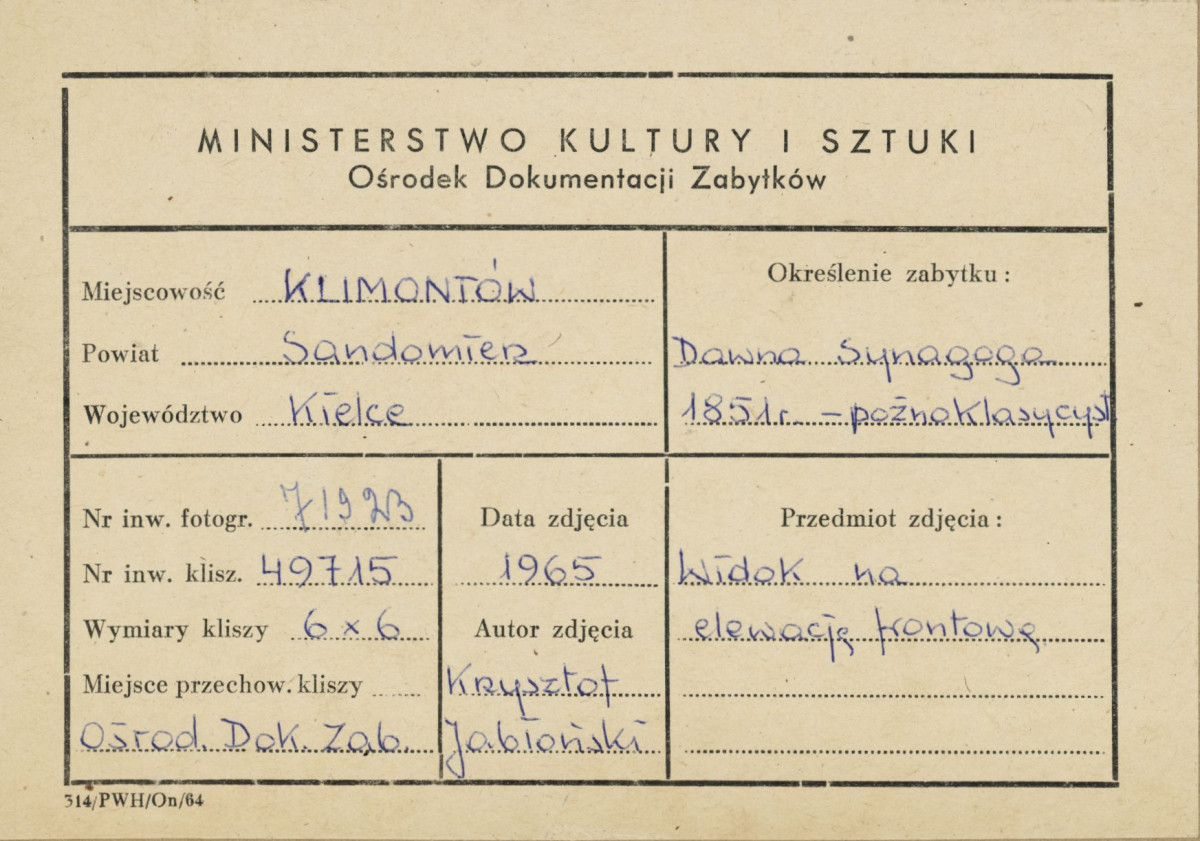 MINISTERSTWO KULTURY I SZTUKI
Ośrodek Dokumentacji Zabytków
Miejscowość KLIMONTÓW
Powiat Sandomierz
Województwo Kielce
Określenie zabytku:
Dawna Synagoga
1851r. – poźnoklasycyst
Nr inw. fotogr. 71923
Nr inw. klisz. 49715
Wymiary kliszy 6 x 6
Miejsce przechow. kliszy
Ośrod. Dok. Zab.
Data zdjęcia
1965
Autor zdjęcia
Krzysztof
Jabłoński
Przedmiot zdjęcia:
Widok na
elewację frontową
314/PWH/On/64